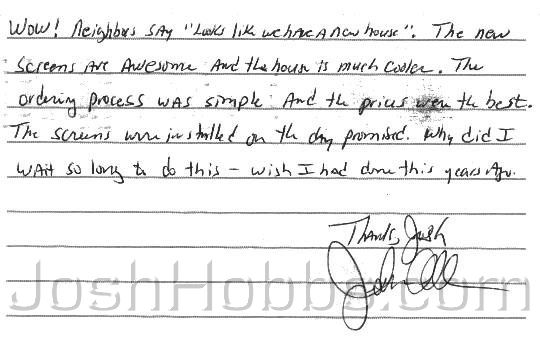 Wow! Neighbors say "Looks like we have a new house". The new
screens are awesome and the house is much cooler. The
ordering process was simple and the prices were the best.
The screens were installed on the day promised. Why did I
wait so long to do this – wish I had done this years ago.
Thanks, Josh
JoshHobbs.com